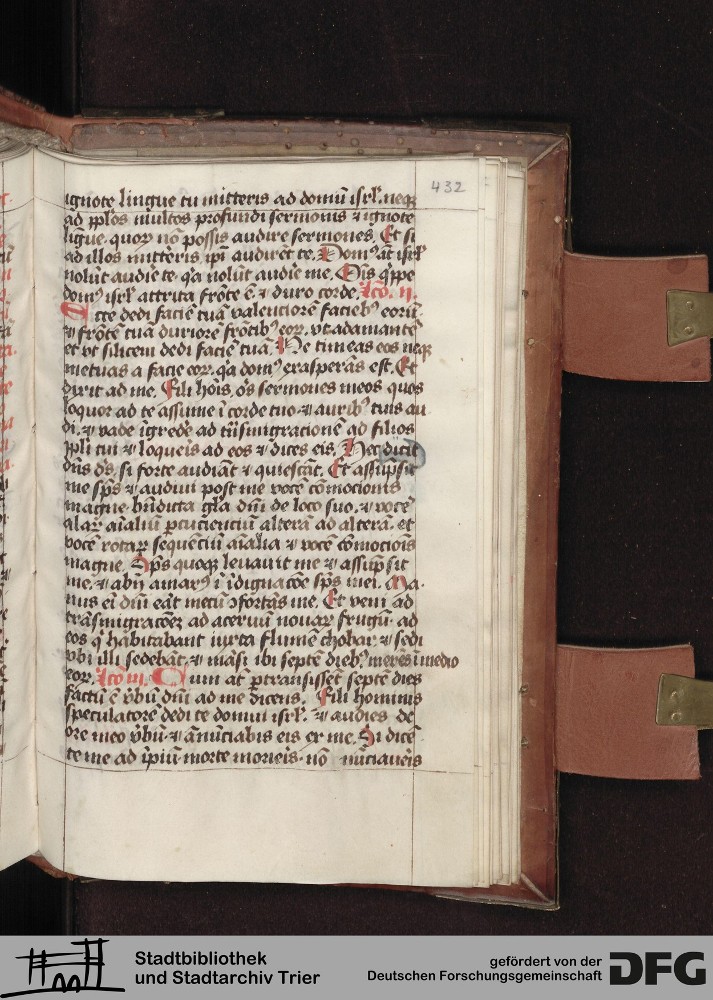 432
ignote lingue tu mitteris ad domū isrl̄. neqꝫ
ad ppl̄os multos profundi sermonis ⁊ ignote
ligue. quoꝝ nō possis audire sermones. Et si
ad illos mitteris, ipī audirēt te. Domꝰ āt isrl̄
nolūt audire te. qꝛ nolūt audire me. Oīs q̄ppe
domꝰ isrl̄ attrita frōte ē. ⁊ duro corde. Lcō. II.
Ecce dedi faciē tuā valenciorē faciebꝰ eorū.
⁊ frōtē tuā duriorē frōtibꝰ eoꝝ. vt adamantē
et vt silicem dedi faciē tuā. Ne timeas eos neqꝫ
metuas a facie eoꝝ. qꝛ domꝰ exasperās est. Et
dixit ad me. Fili hoīs, oēs sermones meos quos
loquor ad te assume ī corde tuo. ⁊ auribꝰ tuis au
di. ⁊ vade īgrede ad trāsmigracionē ad filios
ppl̄i tui ⁊ loqueris ad eos ⁊ dices eis. Hec dicit
dn̄s ds̄. si forte audiāt ⁊ quiescāt. Et assūpsit
me sp̄s ⁊ audiui post me vocē cōmocionis
magne. bn̄dicta gl̄a dn̄i de loco suo. ⁊ vocē
alaꝝ aīaliū ꝑcuciencium alterā ad alterā. et
vocē rotaꝝ sequēciū aīalia ⁊ vocē cōmociōis
magne. Sp̄s quoqꝫ leuauit me ⁊ assūpsit
me. ⁊ abij amarꝰ ī īdignacōe sp̄s mei. Ma
nus ei dn̄i erāt mecū ↄfortās me. Et veni ad
trāsmigracōeꝫ ad aceruū nouaꝝ frugū. ad
eos q̄ habitabant iuxta flumē chobar. ⁊ sedi
vbi illi sedebāt. ⁊ māsi ibi septē diebꝰ merēs ī medio
eoꝝ. Lcō. III. Cum āt ꝑtransissēt septē dies
factū ē v̄bū dn̄i ad me dicens. Fili hominis
speculatorē dedi te domui isrl̄. ⁊ audies de
ore meo v̄bū. ⁊ ānūciabis eis ex me. Si dicē
te me ad īpiū. morte morieris. nō nūciaueris
Stadtbibliothek
und Stadtarchiv Trier
gefördert von der
Deutschen Forschungsgemeinschaft
DFG